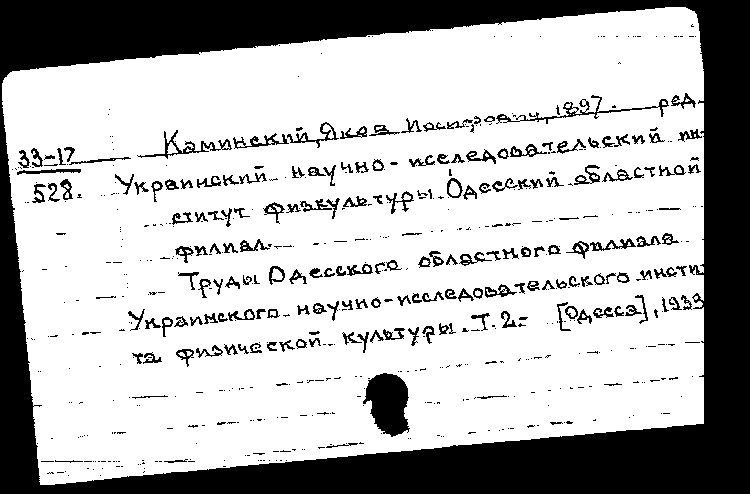 Каминский, Яков Иосифович, 1897. ред.
33-17
528.
Украинский научно-исследовательский ин-
ститут физкультуры. Одесский областной
филиал.
Труды Одесского областного филиала
Украинского научно-исследовательского инсти
та физической культуры. Т. 2.- [Одесса], 1933